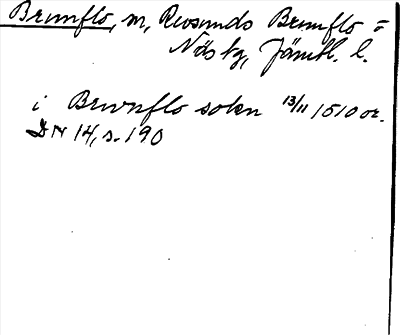 Brunflo, m, Revsunds Brunflo o
Näs tg, Jämtl. l.
i Brwnflo sokn 13/11 1510 or.
DN 14, s. 190